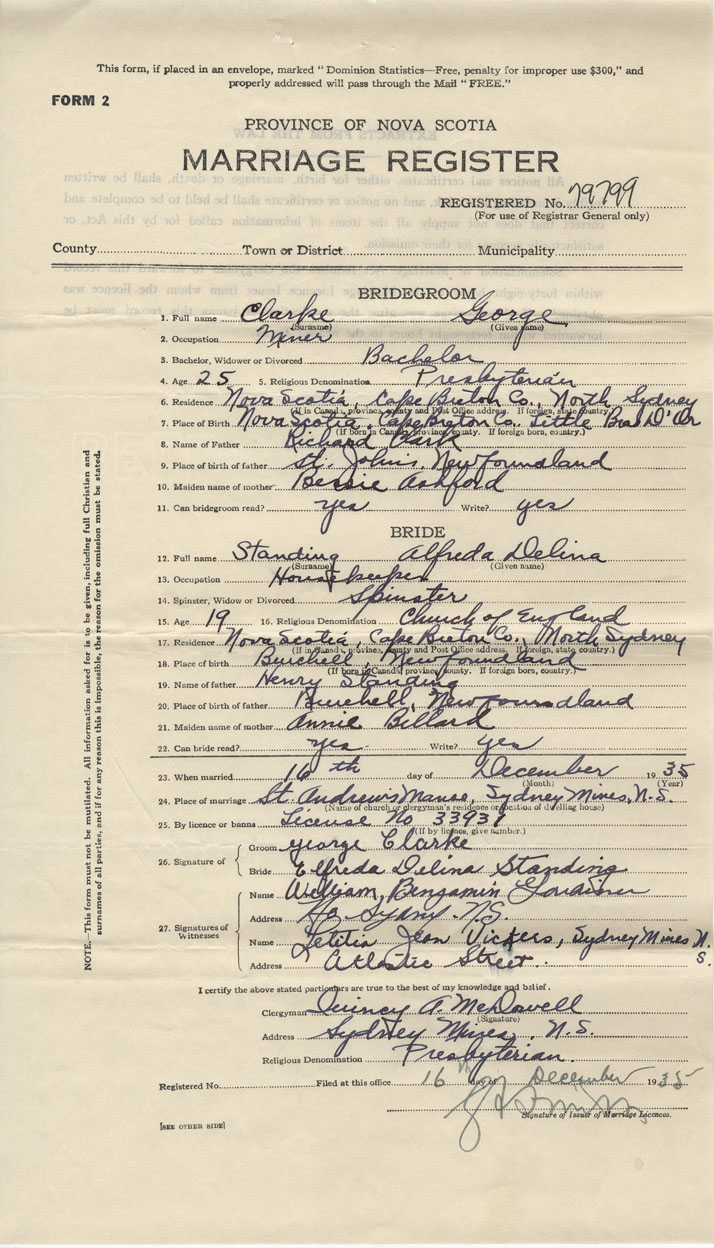 This form, if placed in an envelope, marked " Dominion Statistics—Free, penalty for improper use $300," and
properly addressed will pass through the Mail " FREE."
FORM 2
PROVINCE OF NOVA SCOTIA
MARRIAGE REGISTER
REGISTERED No. 79799
(For use of Registrar General only)
County Town or District Municipality
BRIDEGROOM
1. Full name Clarke George
(Surname) (Given name)
2. Occupation Miner
3. Bachelor, Widower or Divorced Bachelor
4. Age 25 5. Religious Denomination Presbyterian
6. Residence Nova Scotia, Cape Breton Co., North Sydney
(If in Canada, province, county and Post Office address. If foreign, state country.)
7. Place of Birth Nova Scotia, Cape Breton Co. Little Bras D'Or
(If born in Canada, province, county. If foreign born, country.)
8. Name of Father Richard Clark
9. Place of birth of father St. Johns, Newfoundland
10. Maiden name of mother Bessie Ashford
11. Can bridegroom read? yes Write? yes
BRIDE
12. Full name Standing Alfreda Delina
(Surname) (Given name)
13. Occupation Housekeeper
14. Spinster, Widow or Divorced Spinster
15. Age 19 16. Religious Denomination Church of England
17. Residence Nova Scotia, Cape Breton Co., North Sydney
(If in Canada, province, county and Post Office address. If foreign, state country.)
18. Place of birth Burchell, Newfoundland
(If born in Canada, province, county. If foreign born, country.)
19. Name of father Henry Standing
20. Place of birth of father Burchell, Newfoundland
21. Maiden name of mother Annie Billard
22. Can bride read? yes Write? yes
23. When married 16th day of December 1935
(Month) (Year)
24. Place of marriage St. Andrews Manse, Sydney Mines, N.S.
(Name of church or clergyman's residence or location of dwelling house)
25. By licence or banns License No 33931
(If by licence, give number.)
26. Signature of
Groom George Clarke
Bride Elfreda Delina Standing
27. Signatures of Witnesses
Name William Benjamin Gardiner
Address No. Sydny. N.S.
Name Letitia Jean Vickers, Sydney Mines N.S.
Address Atlantic Street.
I certify the above stated particulars are true to the best of my knowledge and belief.
Clergyman Quincy A. McDowell
(Signature)
Address Sydney Mines, N.S.
Religious Denomination Presbyterian.
Registered No. Filed at this office 16th day of December 1935
Signature of Issuer of Marriage Licences.
[SEE OTHER SIDE]
NOTE.—This form must not be mutilated. All information asked for is to be given, including full Christian and
surnames of all parties, and if for any reason this is impossible, the reason for the omission must be stated.